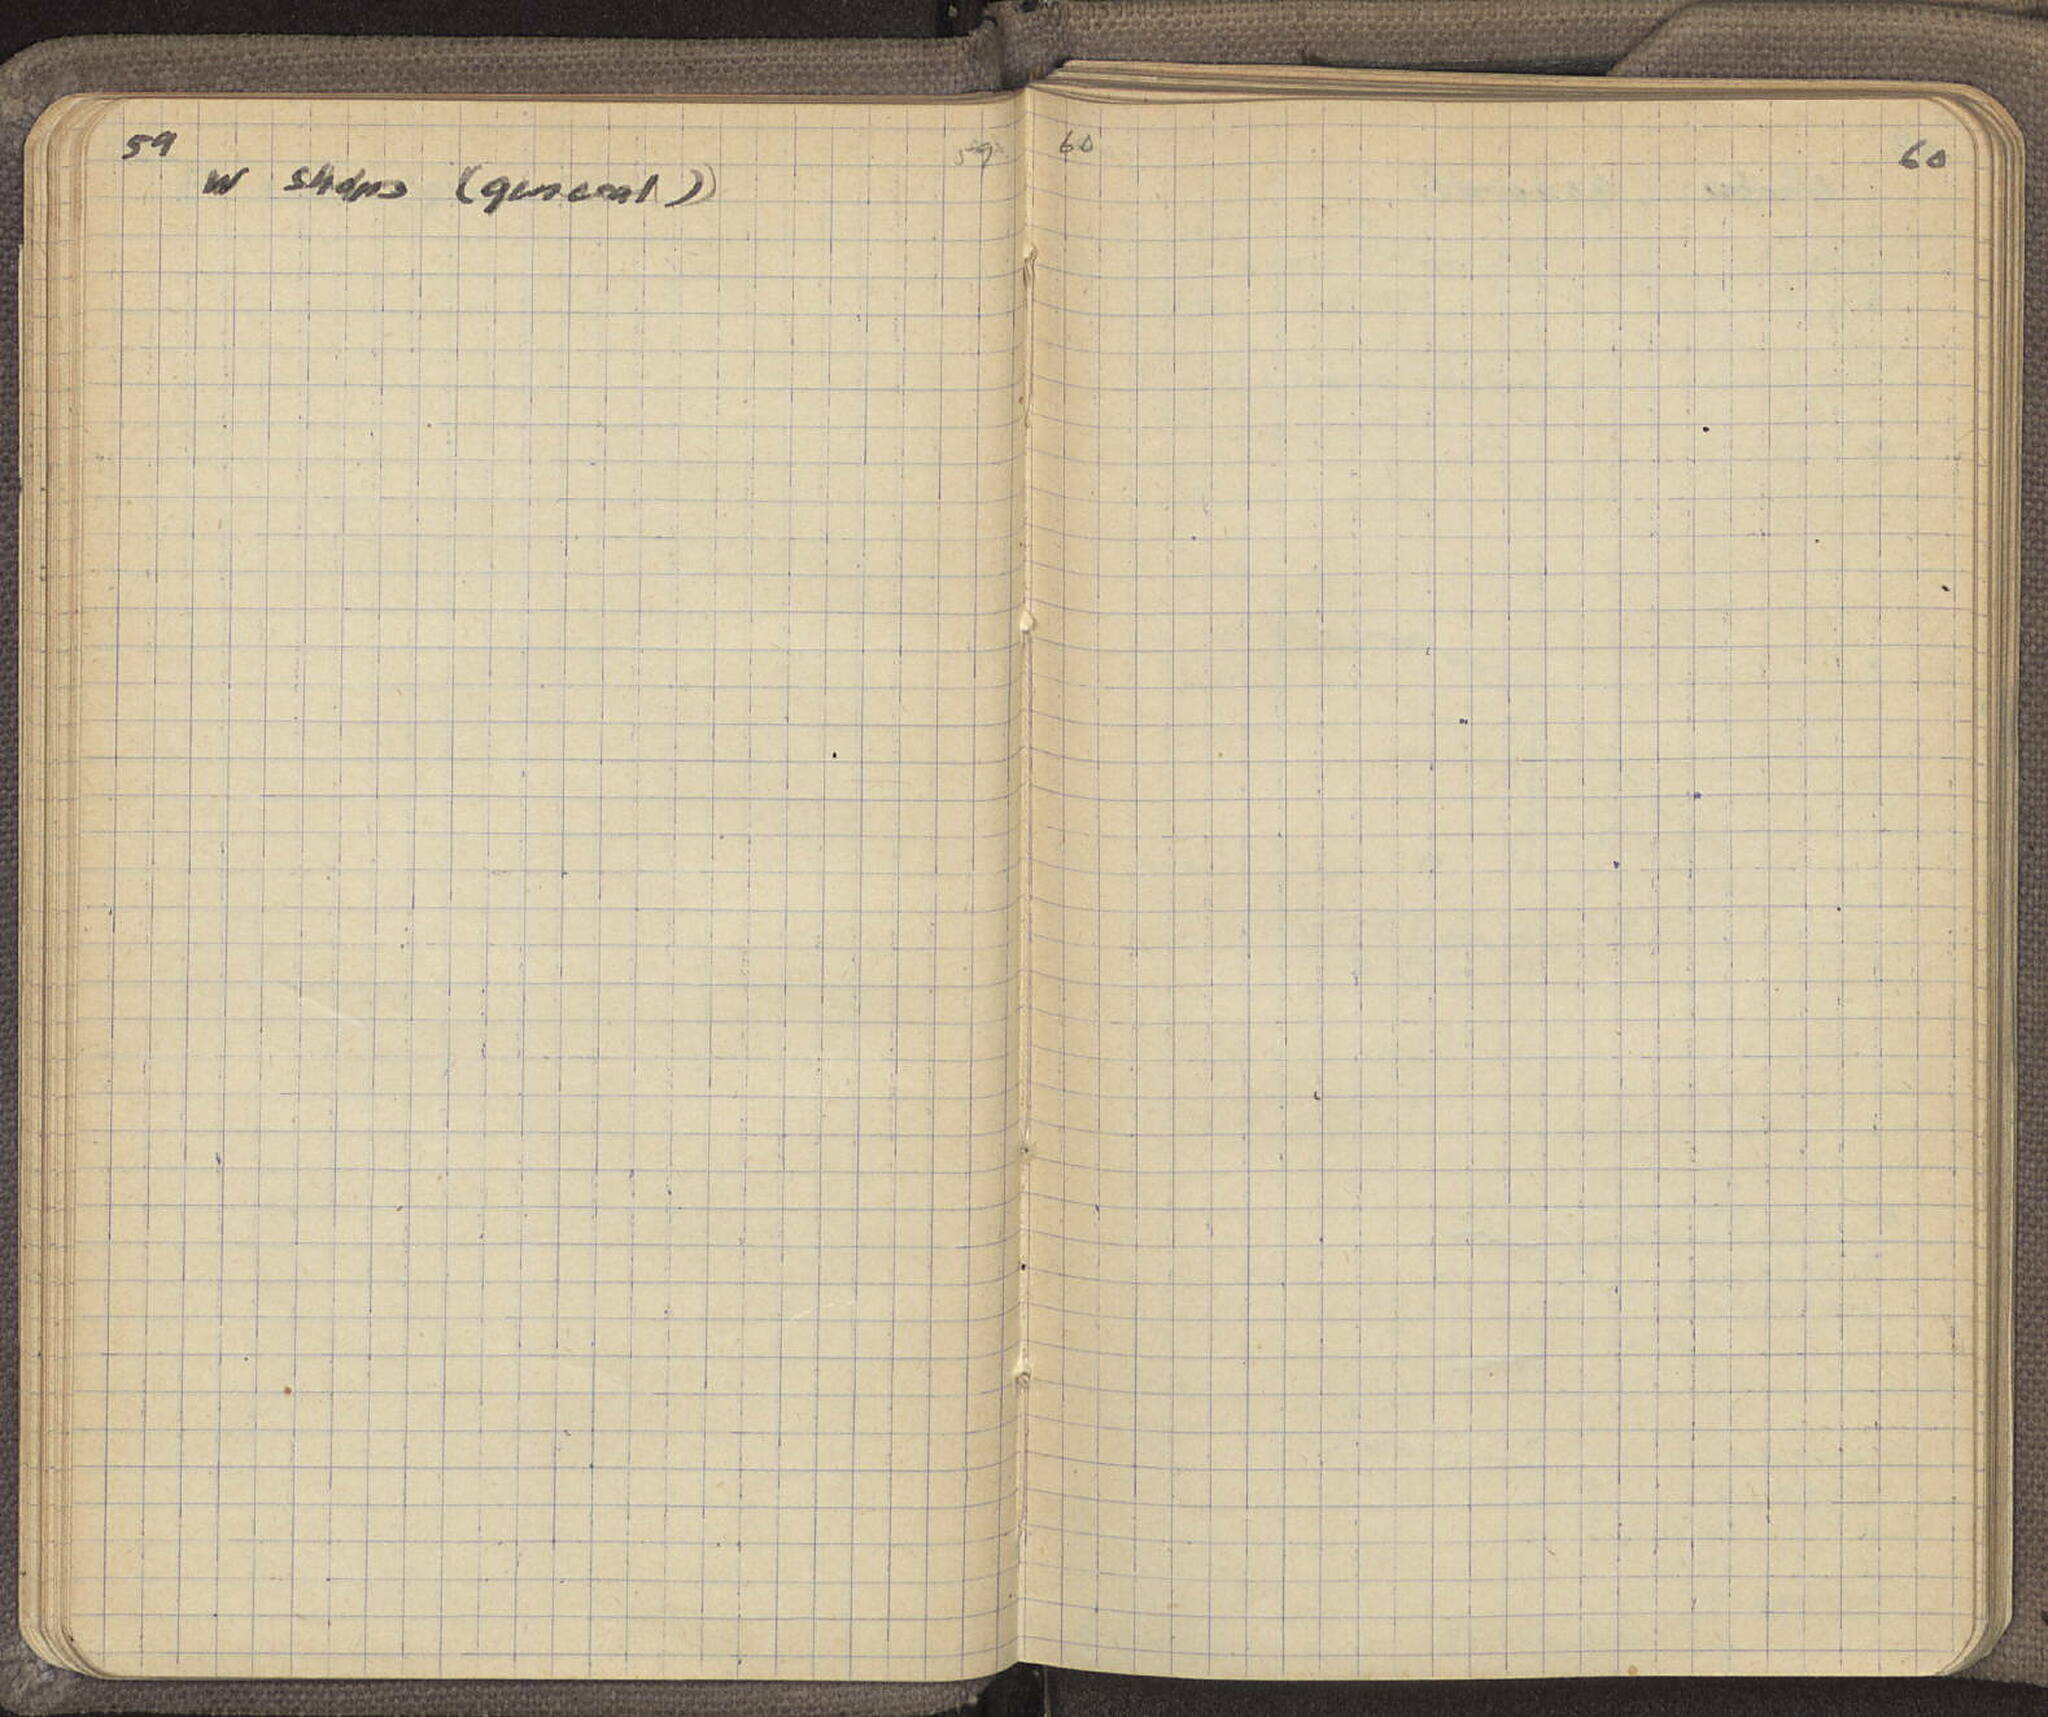 59 59
W shops (general)
60 60